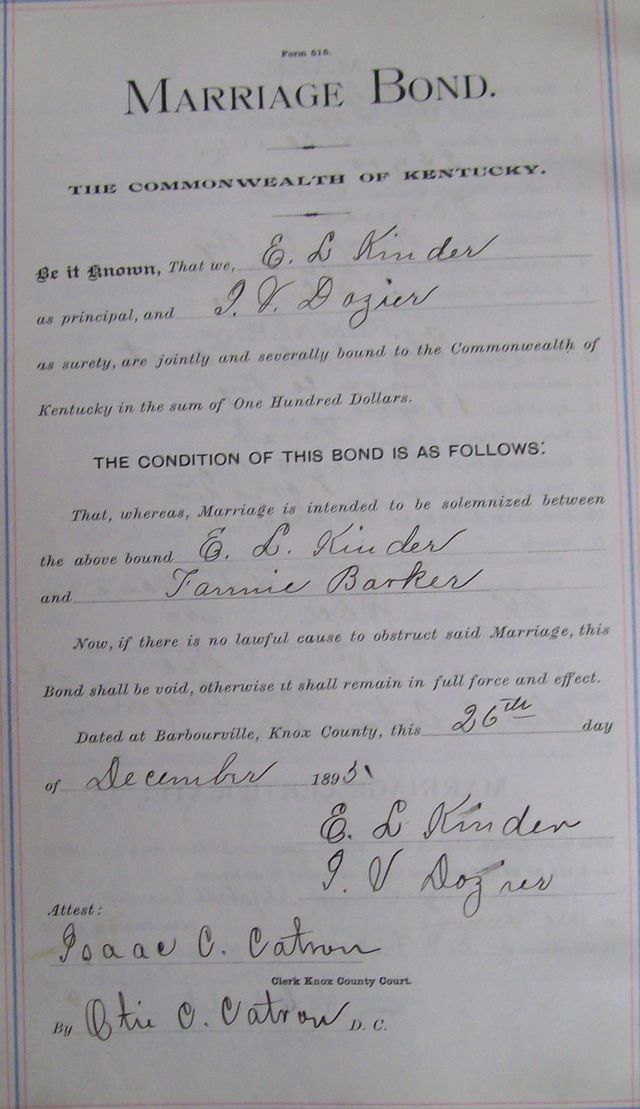 Form 515.
MARRIAGE BOND.
THE COMMONWEALTH OF KENTUCKY.
Be it Known, That we, E. L Kinder
as principal, and I. V. Dozier
as surety, are jointly and severally bound to the Commonwealth of
Kentucky in the sum of One Hundred Dollars.
THE CONDITION OF THIS BOND IS AS FOLLOWS:
That, whereas, Marriage is intended to be solemnized between
the above bound E. L. Kinder
and Fannie Barker
Now, if there is no lawful cause to obstruct said Marriage, this
Bond shall be void, otherwise it shall remain in full force and effect.
Dated at Barbourville, Knox County, this 26th day
of December 1895
E. L Kinder
I. V Dozier
Attest:
Isaac C. Catron
Clerk Knox County Court.
By C. Catron D. C.